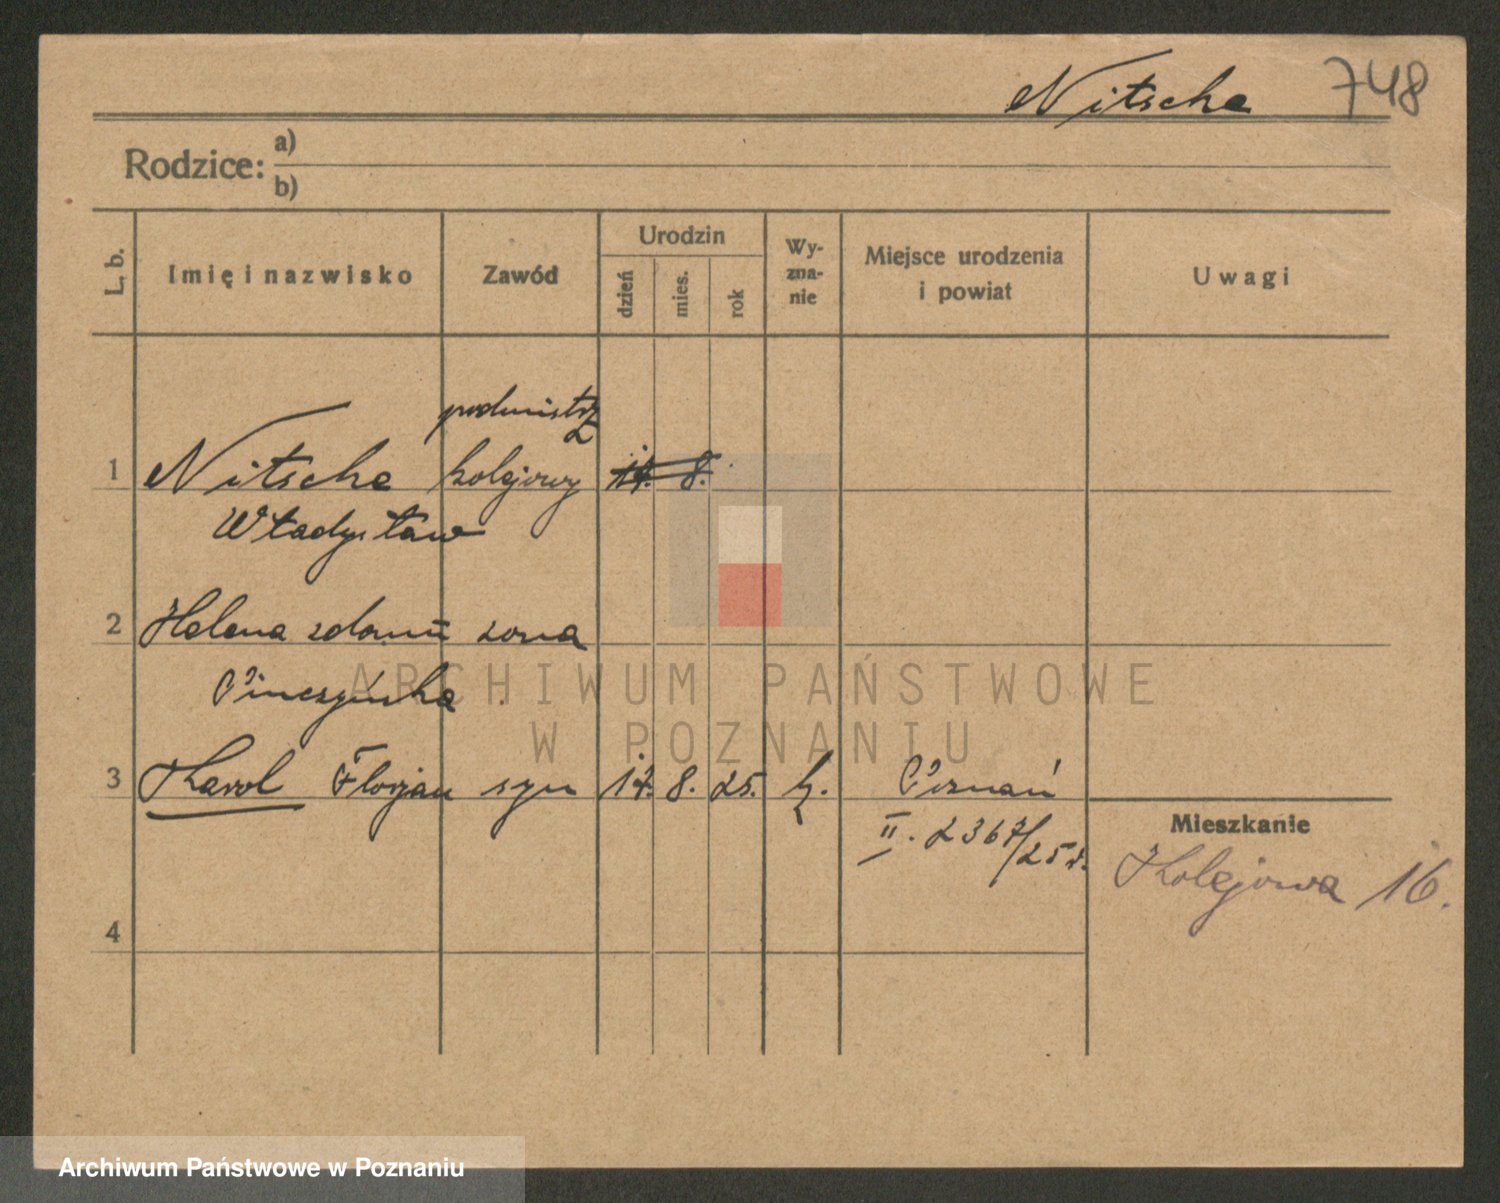 Nitsche 748
Rodzice: a)
b)
L. b.
Imię i nazwisko
Zawód
Urodzin
dzień
mies.
rok
Wy-
zna-
nie
Miejsce urodzenia
i powiat
Uwagi
podmistrz
1 Nitsche kolejowy 17. 8.
Władysław
2 Helena z domu żona
ARCHIWUM PAŃSTWOWE
W POZNANIU
3 Karol Florjan syn 17. 8. 25. k. Poznań
II. 2367/25 r.
Mieszkanie
Kolejowa 16.
4
Archiwum Państwowe w Poznaniu